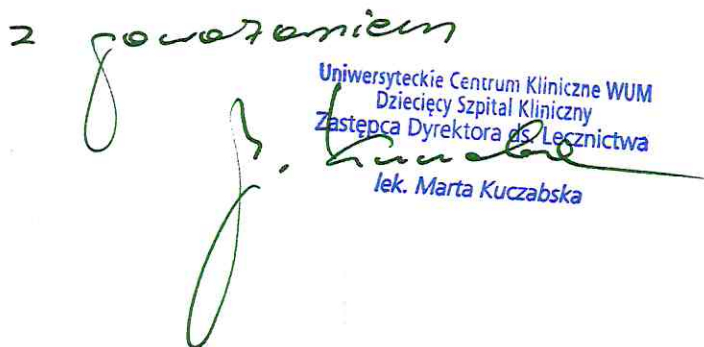 z poważaniem
Uniwersyteckie Centrum Kliniczne WUM
Dziecięcy Szpital Kliniczny
Zastępca Dyrektora ds. Lecznictwa
lek. Marta Kuczabska